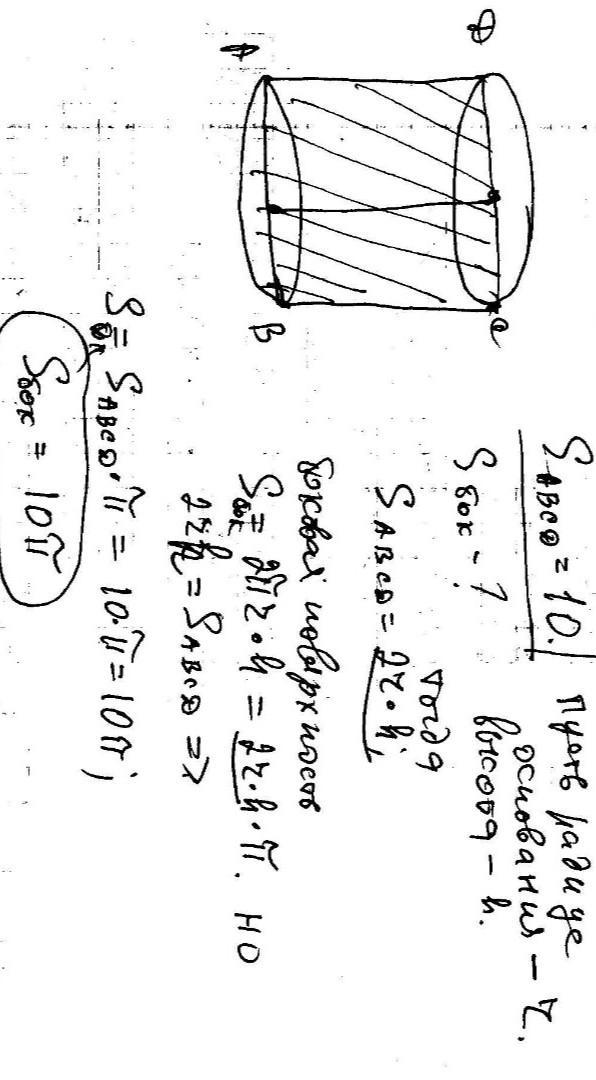 D
C
A
B
S ABCD = 10.
S бок - ?
Пусть радиус
основания – r.
высота – h.
Тогда
S ABCD = 2r·h,
боковая поверхность
S бок = 2πr·h = 2r·h·π. НО
2rh = S ABCD =>
S бок = S ABCD·π = 10·π = 10π;
S бок = 10π